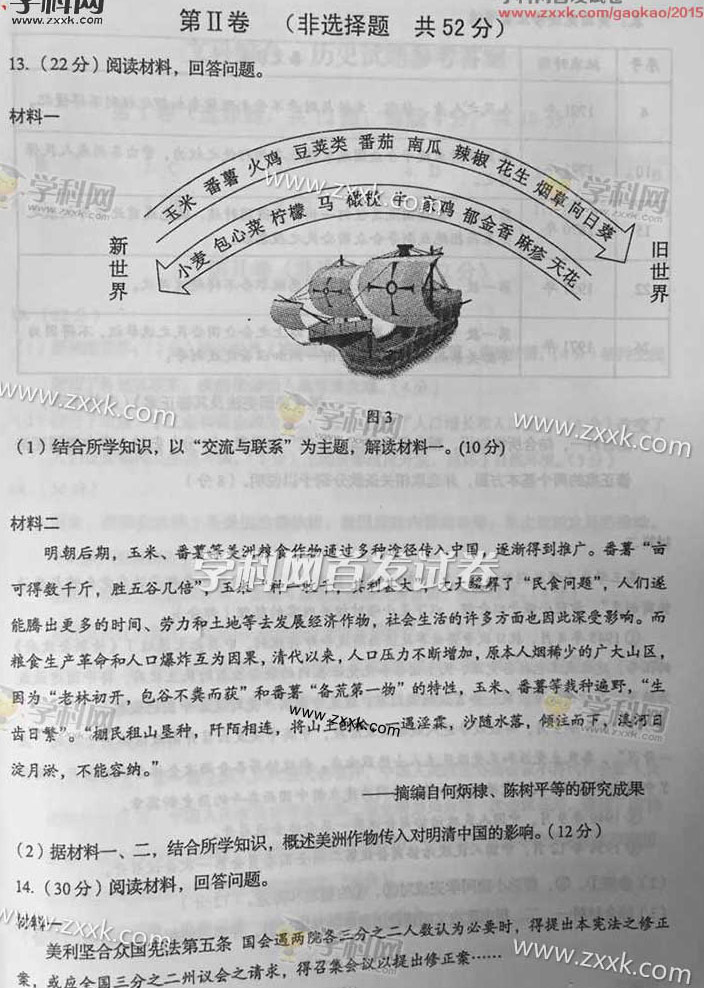 学科网
www.zxxk.com/gaokao/2015
第Ⅱ卷 （非选择题 共52分）
13.（22分）阅读材料，回答问题。
材料一
玉米 番薯 火鸡 豆荚类 番茄 南瓜 辣椒 花生 烟草 向日葵
小麦 包心菜 柠檬 马 橄榄 牛 家鸡 郁金香 麻疹 天花
新世界
旧世界
学科网
www.zxxk.com
学科网
www.zxxk.com
图3
（1）结合所学知识，以“交流与联系”为主题，解读材料一。(10分)
材料二
明朝后期，玉米、番薯等美洲粮食作物通过多种途径传入中国，逐渐得到推广。番薯“亩
可得数千斤，胜五谷几倍”，玉米“种一收千，其利甚大”，大大缓解了“民食问题”，人们遂
能腾出更多的时间、劳力和土地等去发展经济作物，社会生活的许多方面也因此深受影响。而
粮食生产革命和人口爆炸互为因果，清代以来，人口压力不断增加，原本人烟稀少的广大山区，
因为“老林初开，包谷不粪而获”和番薯“备荒第一物”的特性，玉米、番薯等栽种遍野，“生
齿日繁”。“棚民租山垦种，阡陌相连，将山土刨松，一遇淫霖，沙随水落，倾注而下，溪河日
淀月淤，不能容纳。”
——摘编自何炳棣、陈树平等的研究成果
学科网首发试卷
www.zxxk.com
（2）据材料一、二，结合所学知识，概述美洲作物传入对明清中国的影响。（12分）
14.（30分）阅读材料，回答问题。
材料一
美利坚合众国宪法第五条 国会遇两院各三分之二人数认为必要时，得提出本宪法之修正
案，或应全国三分之二州议会之请求，得召集会议以提出修正案……
www.zxxk.com
www.zxxk.com